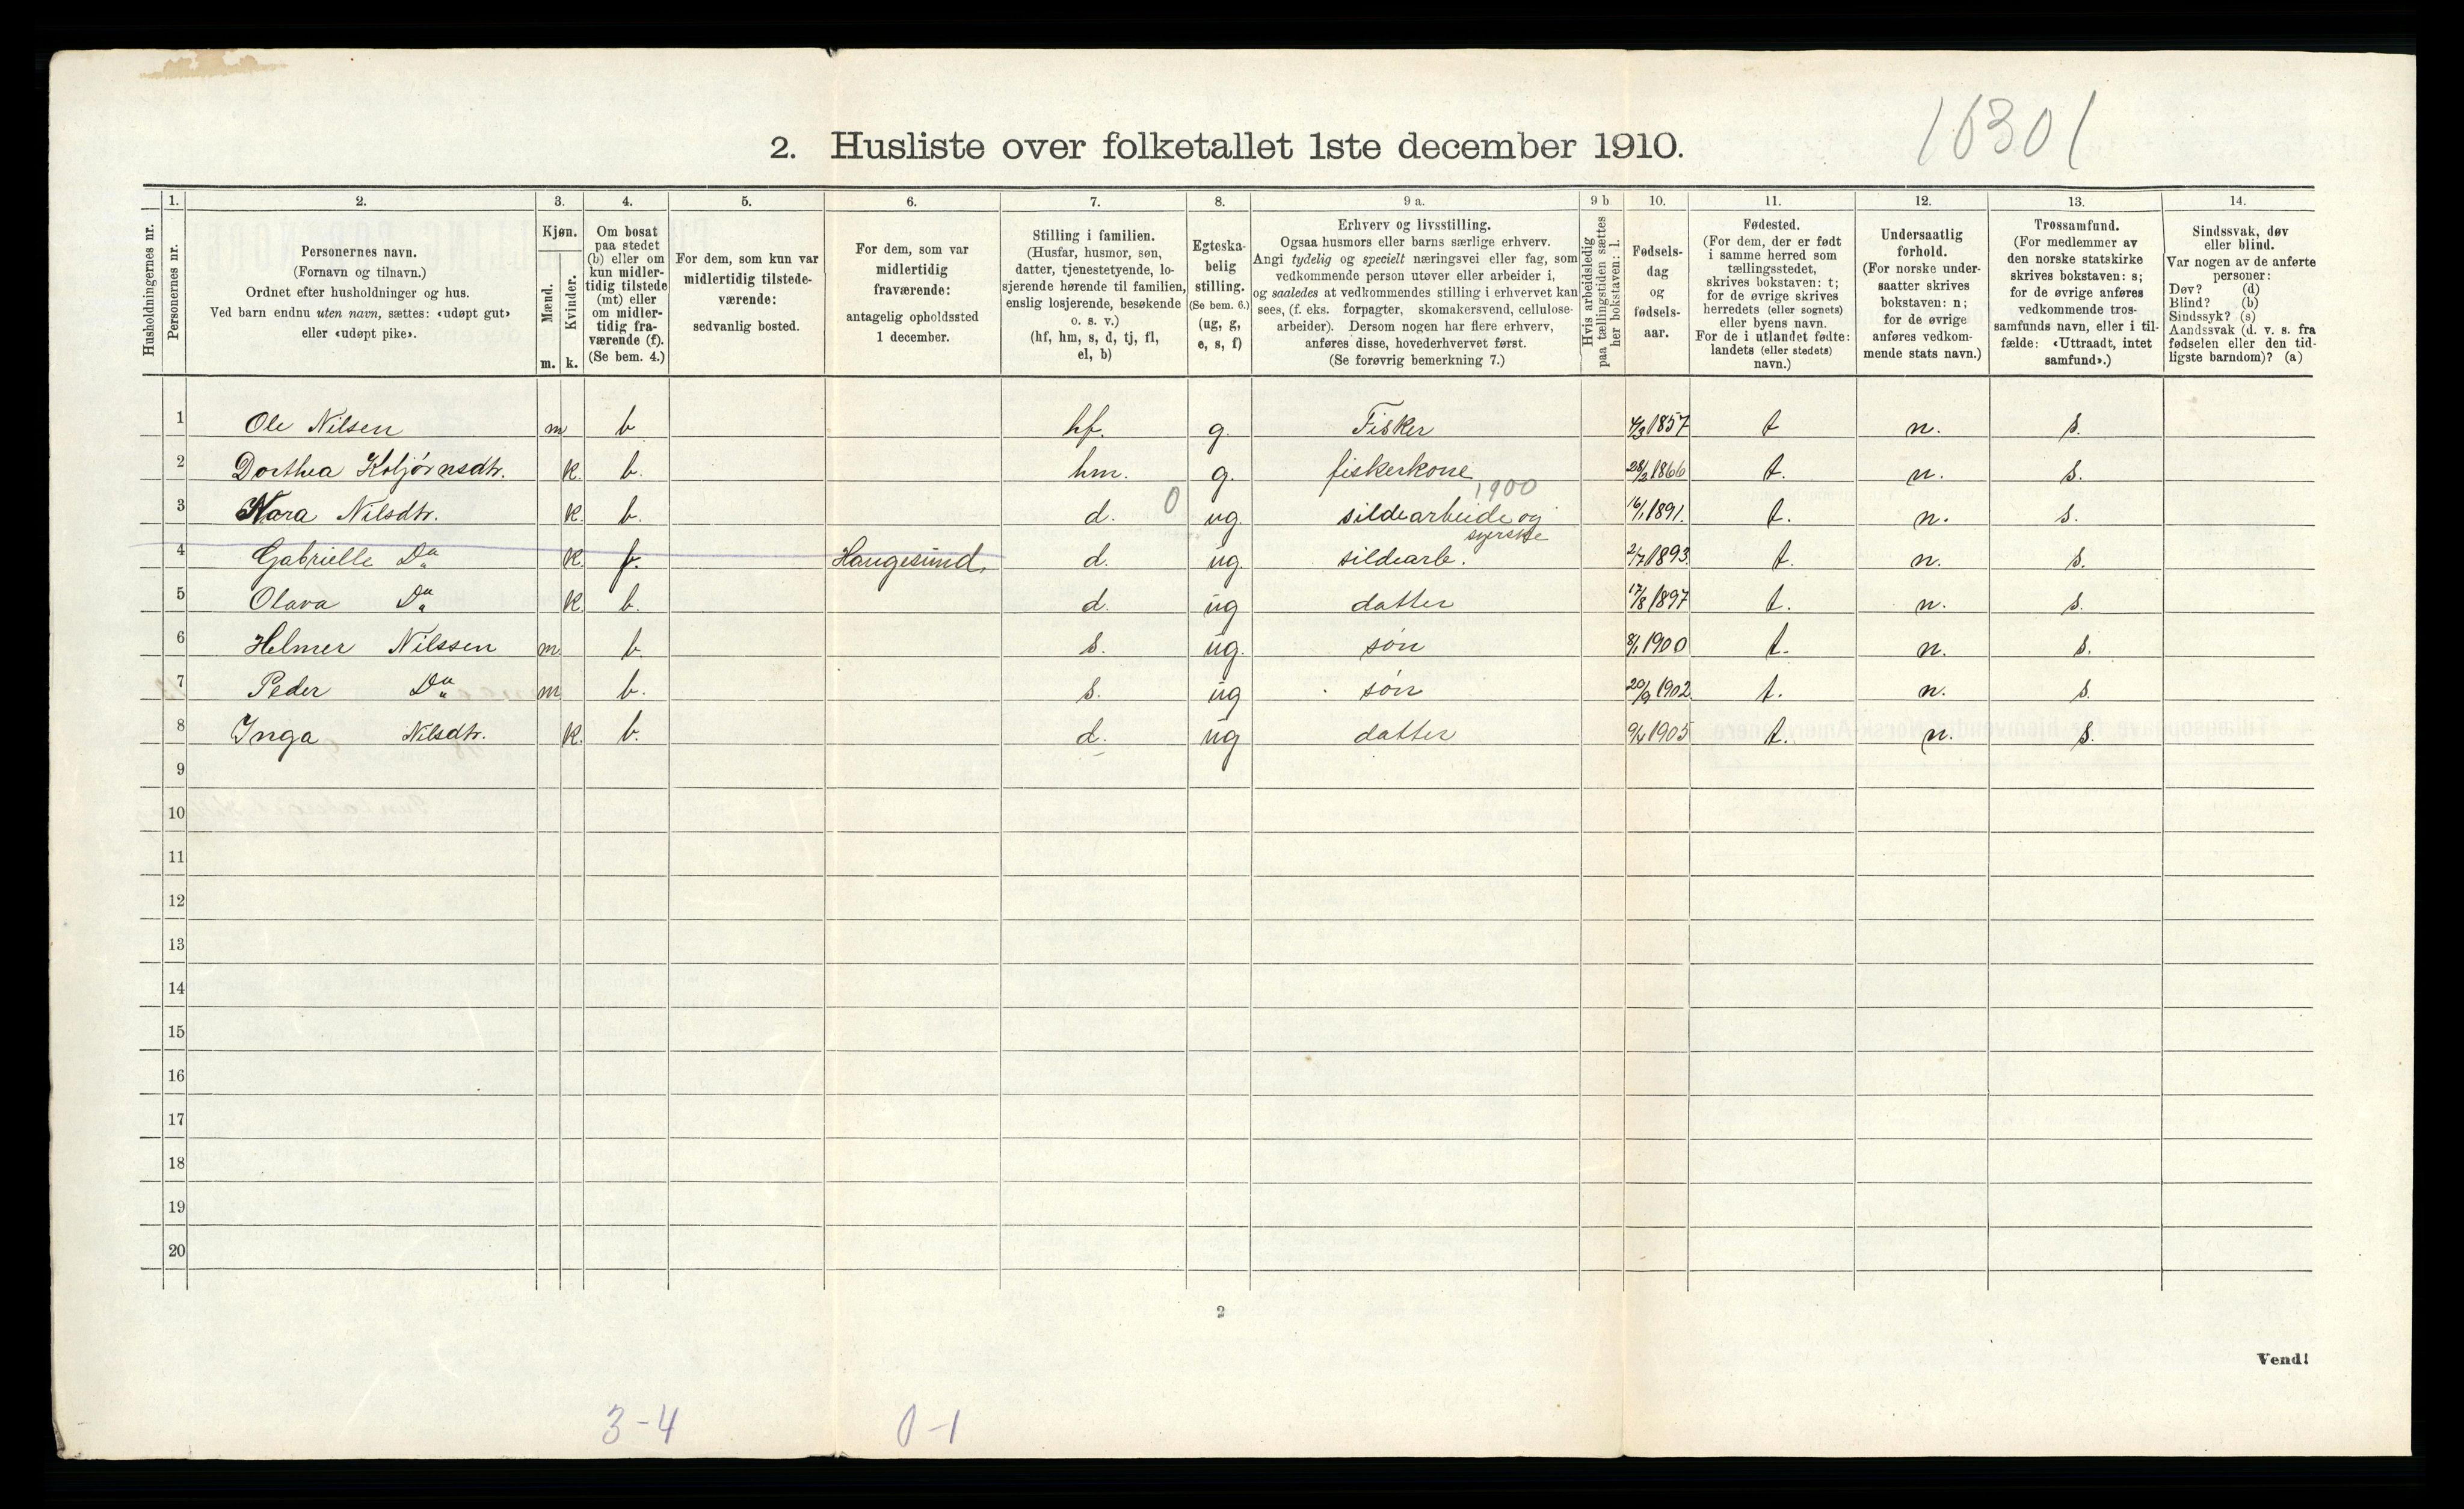 16301
2. Husliste over folketallet 1ste december 1910.
Husholdningernes nr.
1. Personernes nr.
2. Personernes navn.
(Fornavn og tilnavn.)
Ordnet efter husholdninger og hus.
Ved barn endnu uten navn, sættes: «udøpt gut»
eller «udøpt pike».
3. Kjøn.
Mænd. Kvinder.
m. k.
4. Om bosat
paa stedet
(b) eller om
kun midler-
tidig tilstede
(mt) eller
om midler-
tidig fra-
værende (f).
(Se bem. 4.)
5. For dem, som kun var
midlertidig tilstede-
værende:
sedvanlig bosted.
6. For dem, som var
midlertidig
fraværende:
antagelig opholdssted
1 december.
7. Stilling i familien.
(Husfar, husmor, søn,
datter, tjenestetyende, lo-
sjerende hørende til familien,
enslig losjerende, besøkende
o. s. v.)
(hf, hm, s, d, tj, fl,
el, b)
8. Egteska-
belig
stilling.
(Se bem. 6.)
(ug, g,
e, s, f)
9 a. Erhverv og livsstilling.
Ogsaa husmors eller barns særlige erhverv.
Angi tydelig og specielt næringsvei eller fag, som
vedkommende person utøver eller arbeider i,
og saaledes at vedkommendes stilling i erhvervet kan
sees, (f. eks. forpagter, skomakersvend, cellulose-
arbeider). Dersom nogen har flere erhverv,
anføres disse, hovederhvervet først.
(Se forøvrig bemerkning 7.)
9 b Hvis arbeidsledig
paa tællingstiden sættes
her bokstaven: l.
10. Fødsels-
dag
og
fødsels-
aar.
11. Fødested.
(For dem, der er født
i samme herred som
tællingsstedet,
skrives bokstaven: t;
for de øvrige skrives
herredets (eller sognets)
eller byens navn.
For de i utlandet fødte:
landets (eller stedets)
navn.)
12. Undersaatlig
forhold.
(For norske under-
saatter skrives
bokstaven: n;
for de øvrige
anføres vedkom-
mende stats navn.)
13. Trossamfund.
(For medlemmer av
den norske statskirke
skrives bokstaven: s;
for de øvrige anføres
vedkommende tros-
samfunds navn, eller i til-
fælde: «Uttraadt, intet
samfund».)
14. Sindssvak, døv
eller blind.
Var nogen av de anførte
personer:
Døv? (d)
Blind? (b)
Sindssyk? (s)
Aandssvak (d. v. s. fra
fødselen eller den tid-
ligste barndom)? (a)
1 Ole Nilsen m b hf. g. Fisker 4/3 1857 t n. s.
2 Dorthea Koljørnsdtr. k. b. hm. g. fiskerkone 28/2 1866 t. n. s.
1900
3 Nora Nilsdtr. k. b. d. 0 ug. sildearbeide og 16/1 1891. t. n. s.
syerske
4 Gabrielle Do k. f. Haugesund. d. ug. sildearb. 2/7 1893. t. n. s.
5 Olava Do k. b. d. ug datter 17/8 1897 t. n. s.
6 Helmer Nilssen m. b. s. ug. søn 8/1 1900 t. n. s.
7 Peder Do m b. s. ug søn 20/9 1902. t. n. s.
8 Inga Nilsdtr. k. b. d. ug datter 9/4 1905 t. n. s.
9
10
11
12
13
14
15
16
17
18
19
20
2
Vend!
3-4 0-1